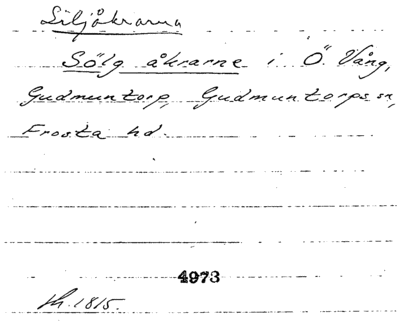 Siljåkrarna
Sölg åkrarne i Ö. Vång,
Gudmuntorp, Gudmuntorps sn,
Frosta hd.
4973
1815.